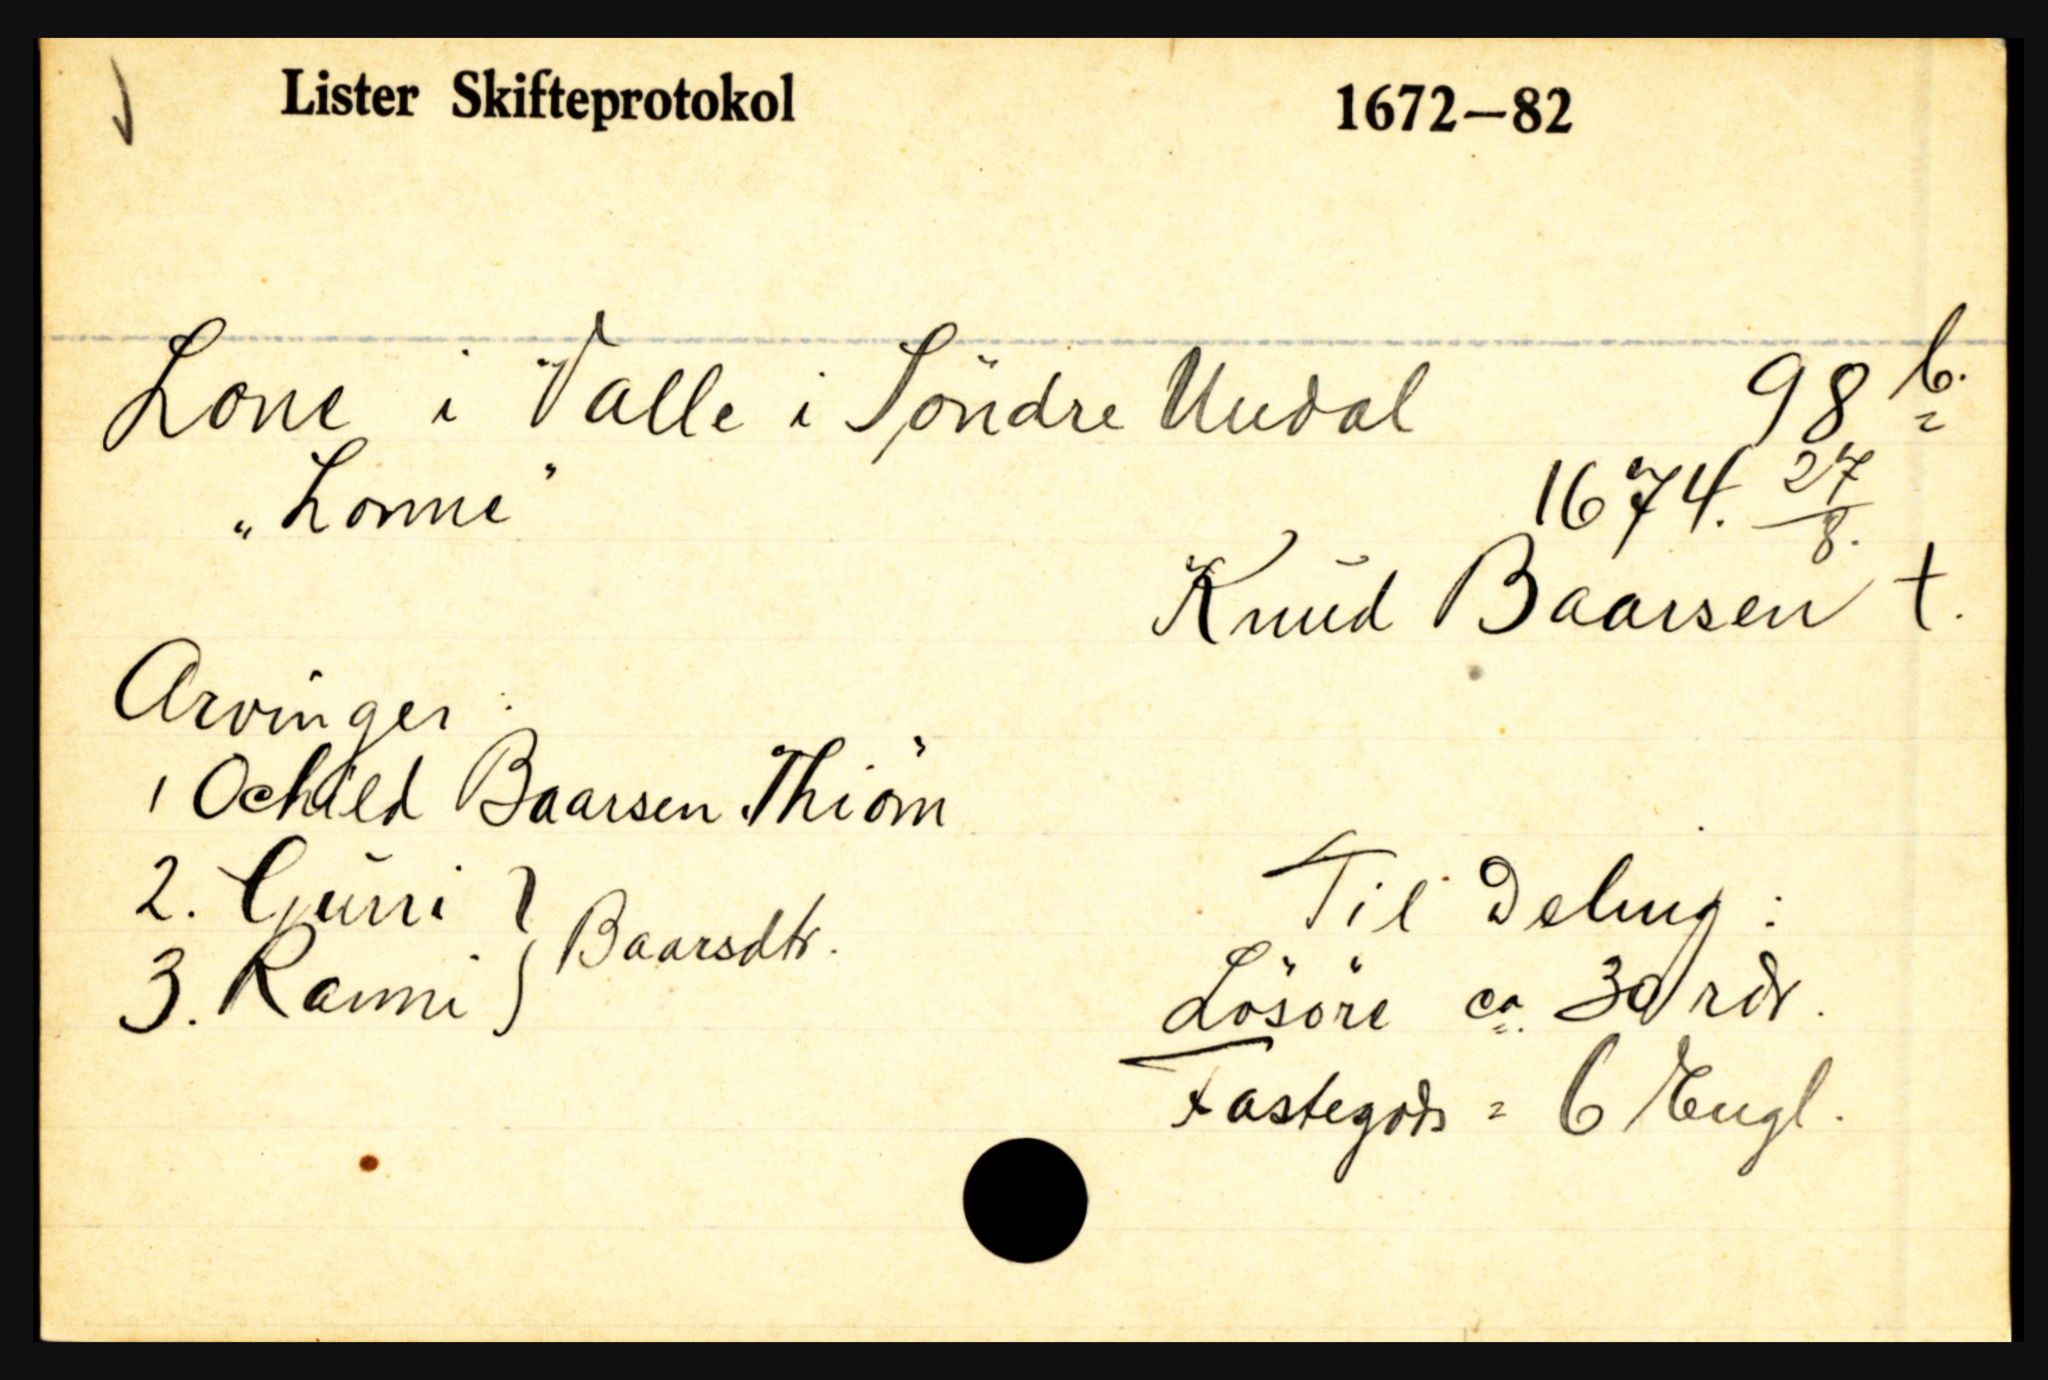 Lister Skifteprotokol 1672–82
Lone i Valle i Söndre Undal 98 b.
„Lonne" 1674. 27/8.
Knud Baarsen †.
Arvinger:
1 Ochild Baarsen Thiöm
2. Gurri } Baarsdtr.
3. Ranni
Til Deling:
Lösöre ca. 30 rdr.
Fastegods = 6 Engl.